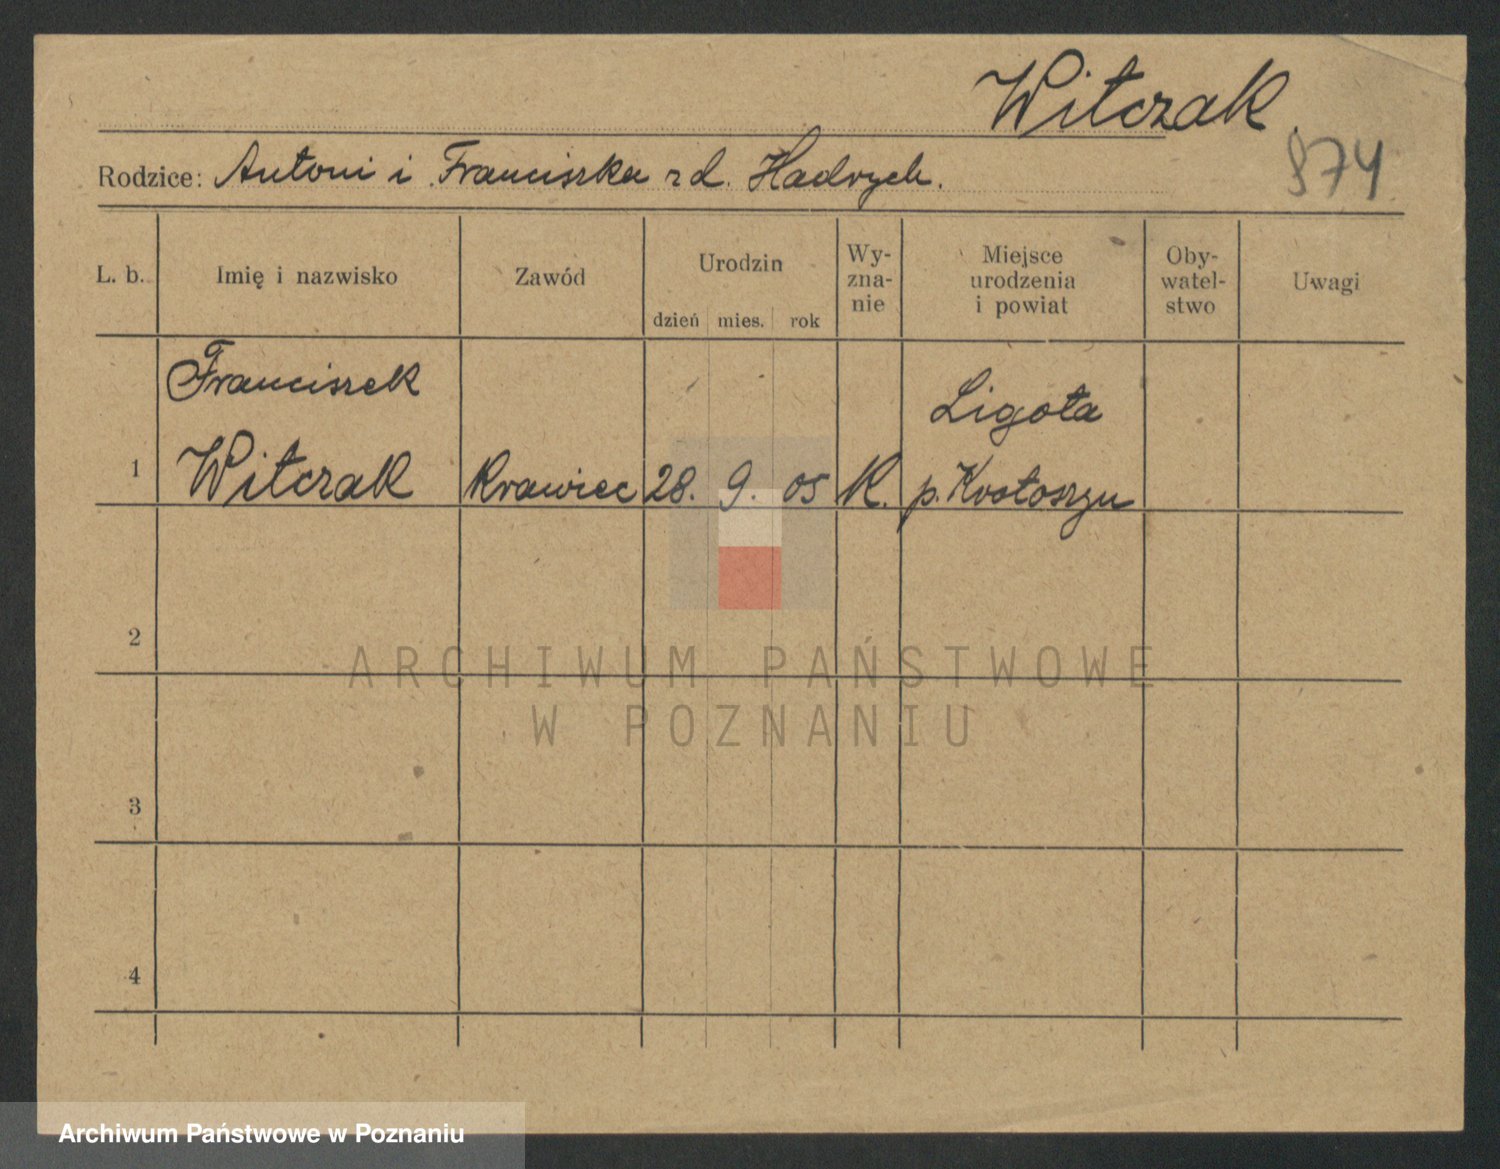 Witczak
874
Rodzice: Antoni i Franciszka zd. Hadrych.
L. b. Imię i nazwisko Zawód Urodzin dzień mies. rok Wy-zna-nie Miejsce urodzenia i powiat Oby-watel-stwo Uwagi
Franciszek Ligota
1 Witczak Krawiec 28. 9. 05 K. p. Krotoszyn
2
ARCHIWUM PAŃSTWOWE
W POZNANIU
3
4
Archiwum Państwowe w Poznaniu